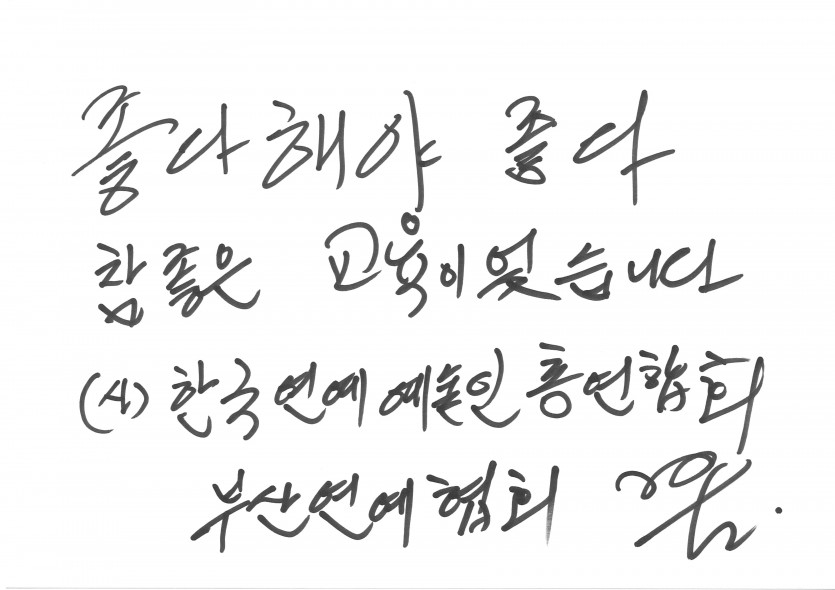 좋다해야 좋다
참좋은 교육이었습니다
(사)한국연예예술인총연합회
부산연예협회